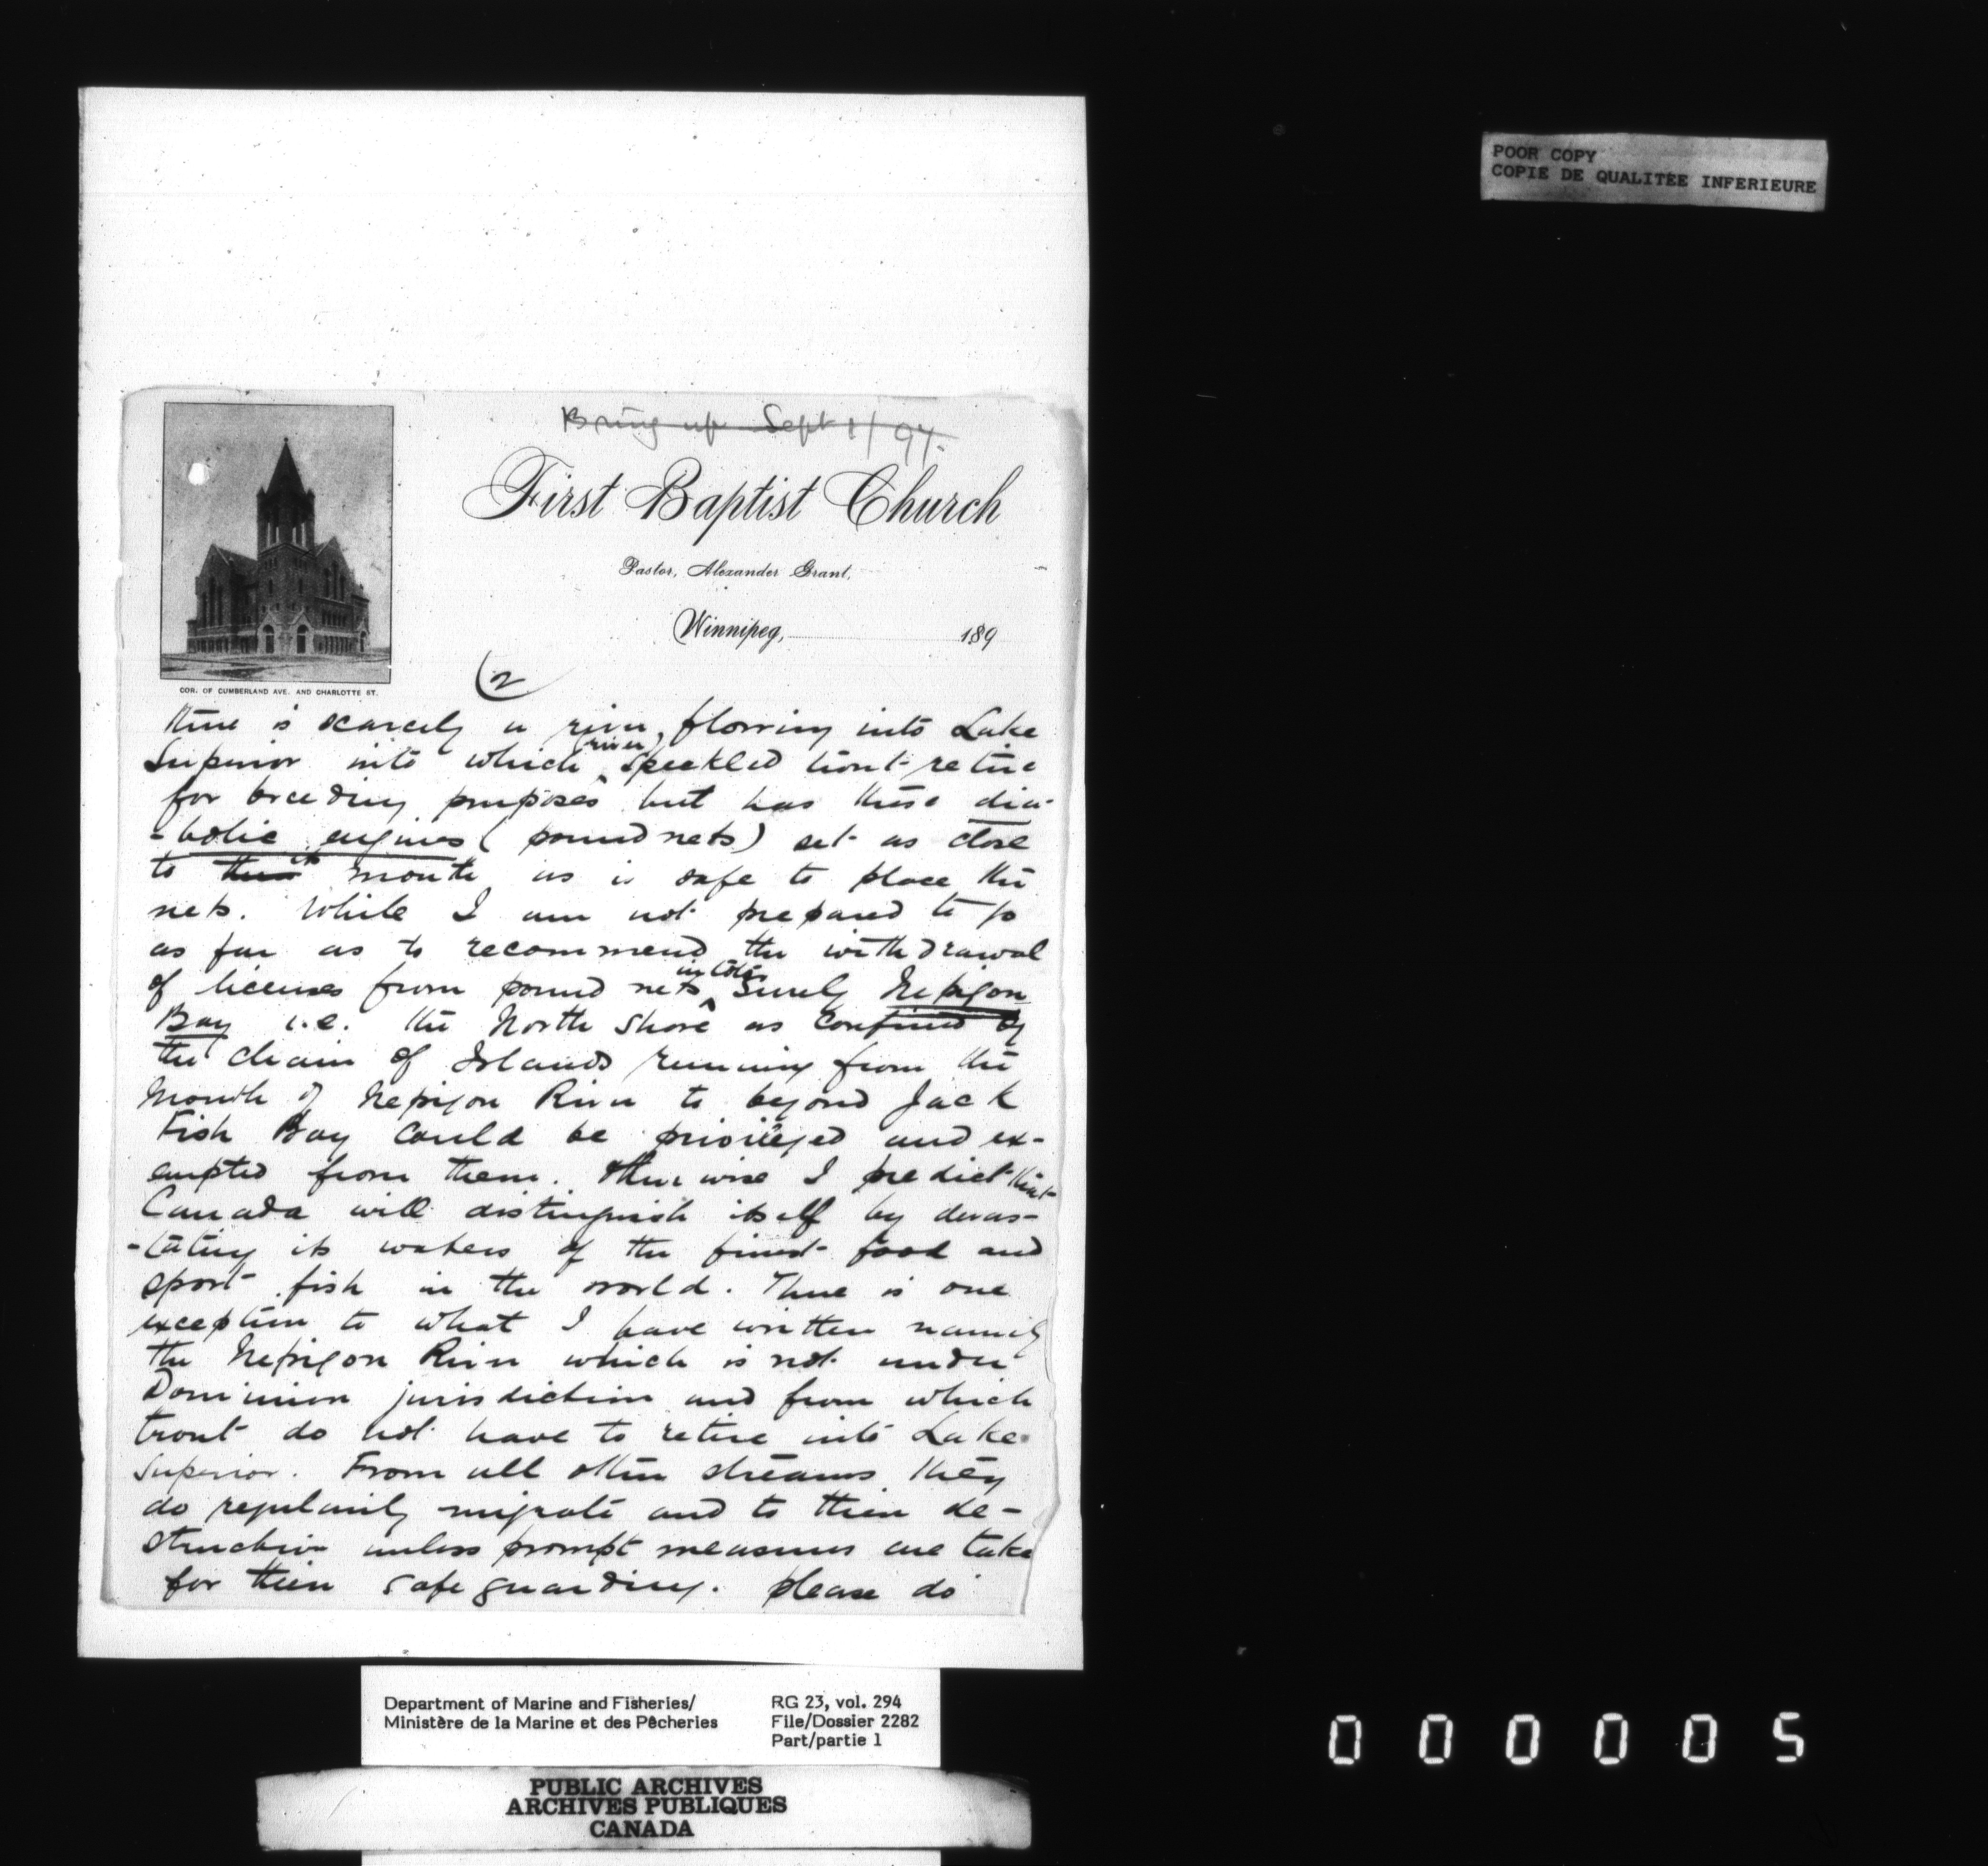 POOR COPY
COPIE DE QUALITEE INFERIEURE
Bring up Sept 1/97.
First Baptist Church
Pastor, Alexander Grant,
Winnipeg, 189
COR. OF CUMBERLAND AVE. AND CHARLOTTE ST.
(2
there is scarcely a river, flowing into Lake
Superior into which river, speckled trout retire
for breeding purposes but has these dia-
-bolic engines (pound nets) set as close
to their its mouth as is safe to place the
nets. While I am not prepared to go
as far as to recommend the withdrawal
of licenses from pound nets in toto surely Nepigon
Bay i.e. the North Shore as confined by
the chain of Islands running from the
Mouth of Nepigon River to beyond Jack
Fish Bay could be privileged and ex-
empted from them. Otherwise I predict that
Canada will distinguish itself by devas-
-tating its waters of the finest food and
sport fish in the world. There is one
exception to what I have written namely
the Nepigon River which is not under
Dominion jurisdiction and from which
trout do not have to retire into Lake
Superior. From all other streams they
do regularly migrate and to their de-
struction unless prompt measures are take
for their safe guarding. please do
Department of Marine and Fisheries/
Ministère de la Marine et des Pêcheries
RG 23, vol. 294
File/Dossier 2282
Part/partie 1
PUBLIC ARCHIVES
ARCHIVES PUBLIQUES
CANADA
000005